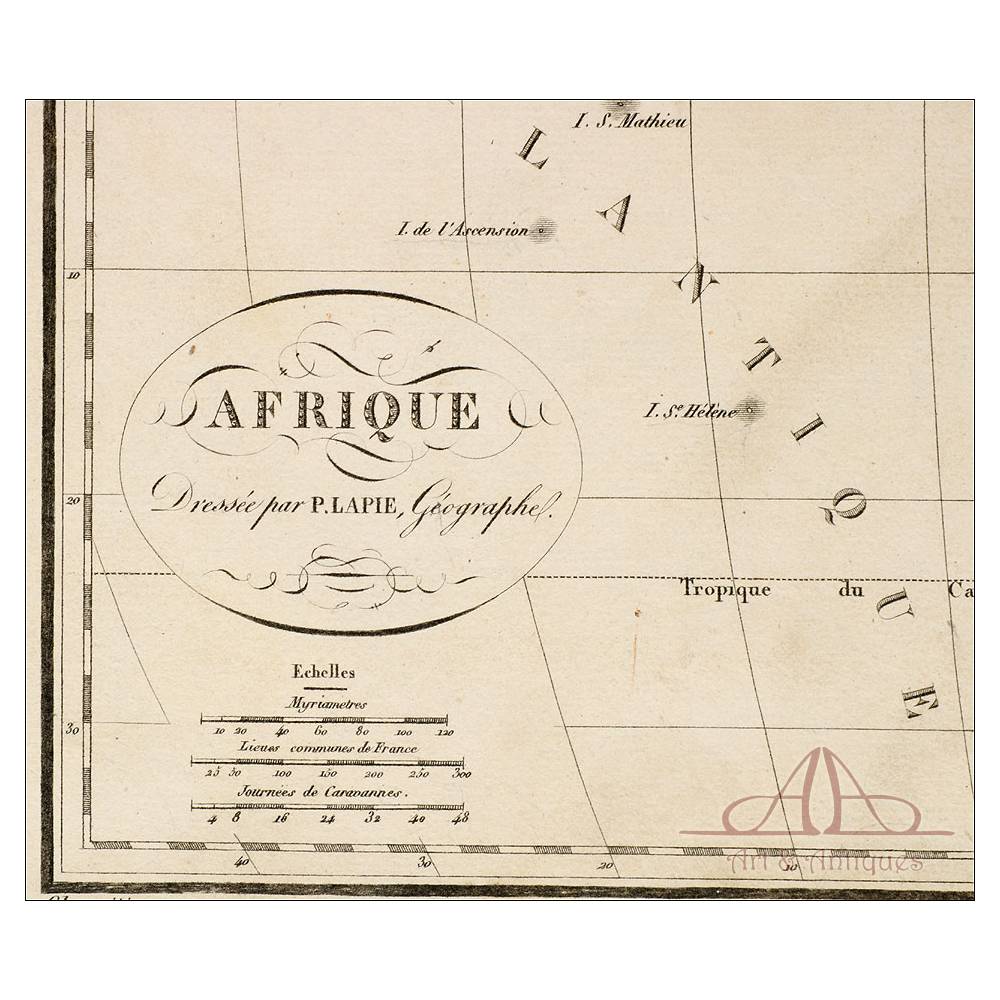 I. S. Mathieu
LANTIQUE
I. de l'Ascension
10
AFRIQUE
I. Se. Hélène
Dressée par P. LAPIE, Géographe.
20
Tropique du Ca
Echelles
Myriametres
10 20 40 60 80 100 120
30
Lieues communes de France
25 50 100 150 200 250 300
Journées de Caravannes.
4 8 16 24 32 40 48
40 30 20 10
Art & Antiques